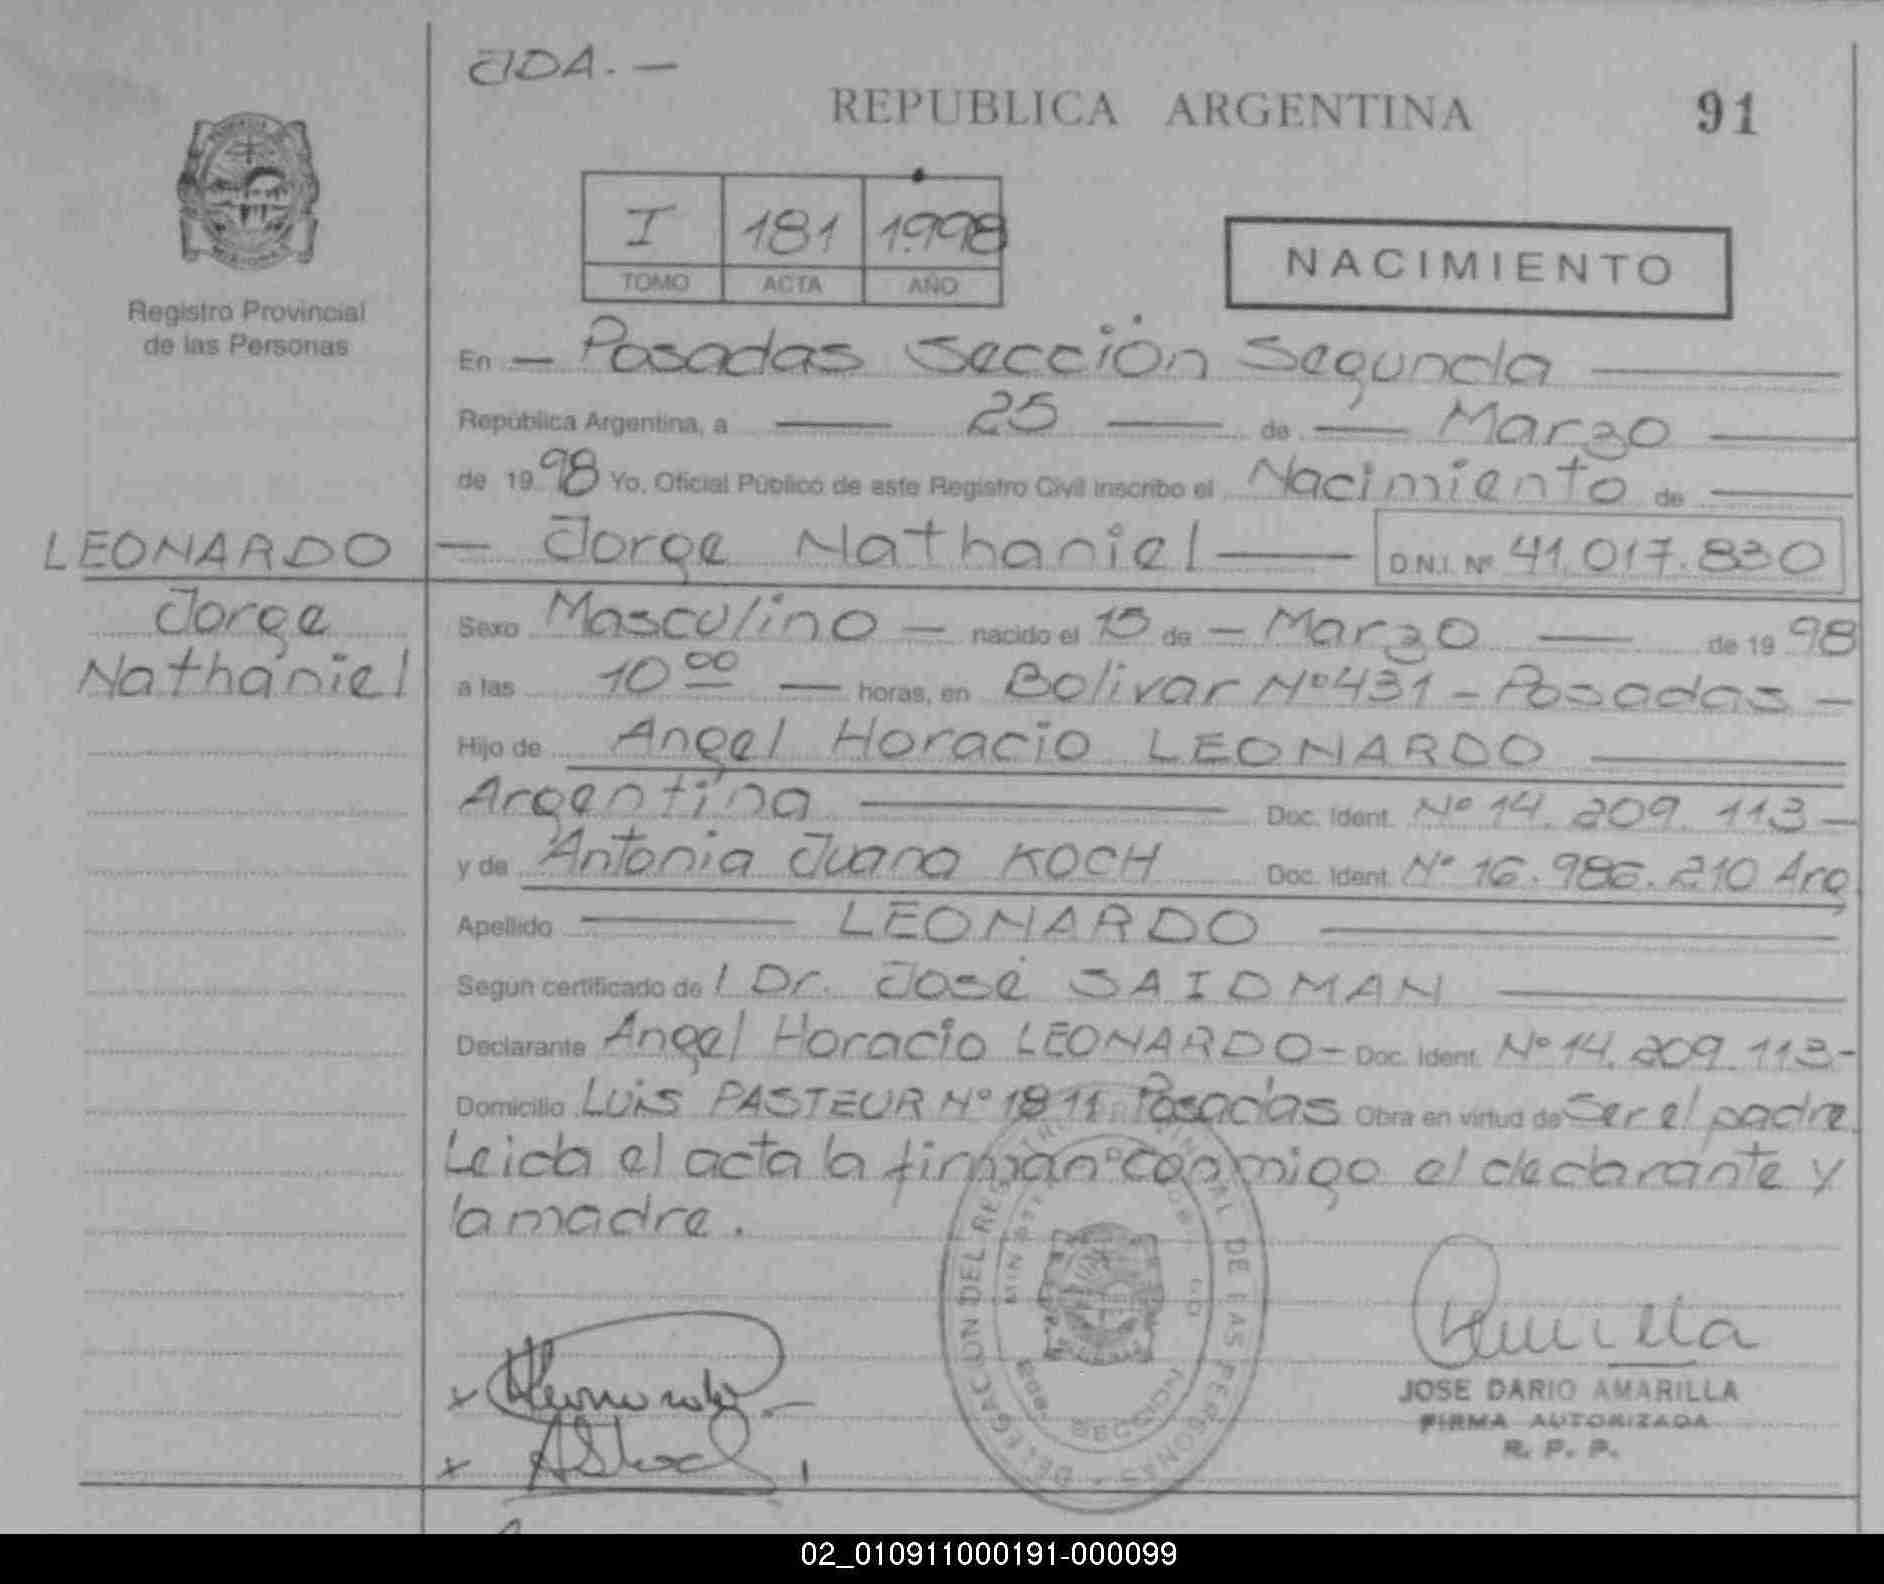 JDA. —
REPUBLICA ARGENTINA 91
I 181 1.998
TOMO ACTA AÑO
NACIMIENTO
Registro Provincial
de las Personas
En — Posadas Sección Segunda —
República Argentina, a — 25 — de — Marzo —
de 19 98 Yo, Oficial Público de este Registro Civil inscribo el Nacimiento de —
LEONARDO — Jorge Nathaniel — D.N.I. Nº 41.017.830
Jorge
Nathaniel
Sexo Masculino — nacido el 15 de — Marzo — de 19 98
a las 10 00 — horas, en Bolivar Nº 431 - Posadas -
Hijo de Angel Horacio LEONARDO —
Argentina — Doc. Ident. Nº 14.209.113 -
y de Antonia Juana KOCH Doc. Ident. Nº 16.986.210 Arg
Apellido — LEONARDO —
Según certificado de l Dr. José SAIDMAN —
Declarante Angel Horacio LEONARDO - Doc. Ident. Nº 14.209.113 -
Domicilio Luis PASTEUR Nº 1811 Posadas Obra en virtud de Ser el padre
Leida el acta la firman conmigo el declarante y
la madre.
DELEGACION DEL REGISTRO PROVINCIAL DE LAS PERSONAS
JOSE DARIO AMARILLA
FIRMA AUTORIZADA
R. P. P.
02_010911000191-000099